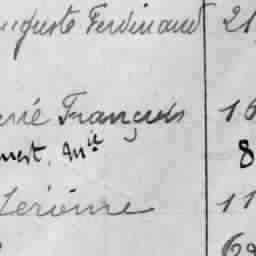 Auguste Ferdinand 21
René François 16
mest. Mie 8
Jérôme 11